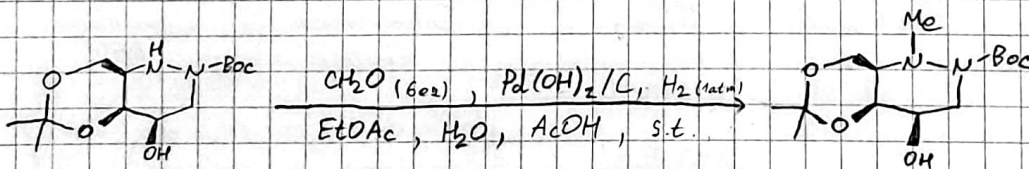 Me
H
N
N
Boc
O
O
OH
CH₂O (6eq), Pd(OH)₂/C, H₂ (1atm)
EtOAc, H₂O, AcOH, s.t.
N
N
Boc
O
O
OH